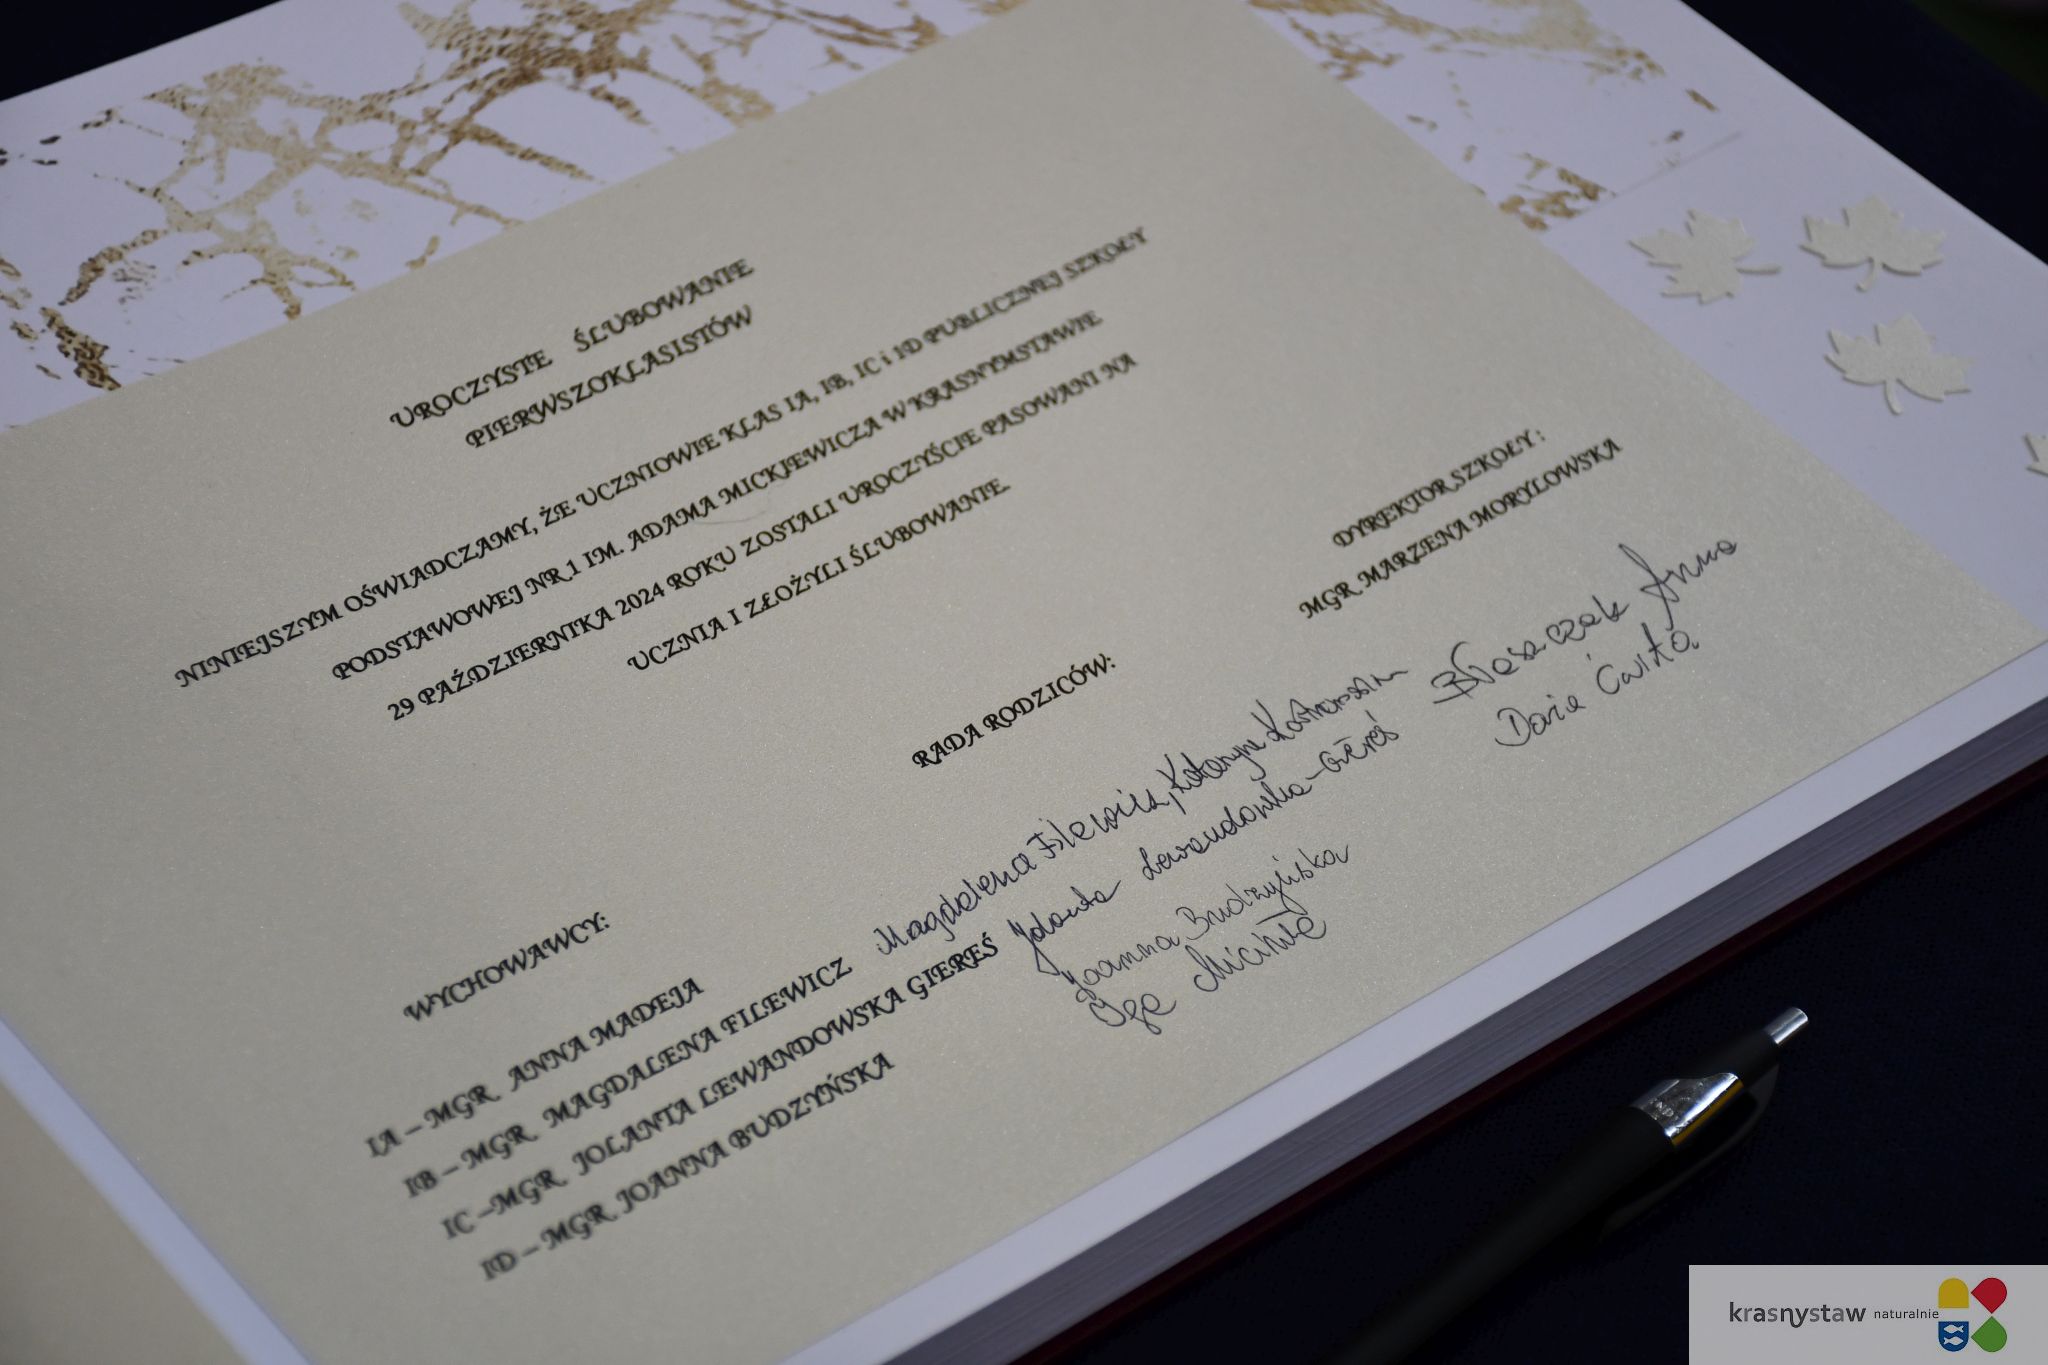 UROCZYSTE ŚLUBOWANIE
PIERWSZOKLASISTÓW
NINIEJSZYM OŚWIADCZAMY, ŻE UCZNIOWIE KLAS IA, IB, IC i ID PUBLICZNEJ SZKOŁY
PODSTAWOWEJ NR 1 IM. ADAMA MICKIEWICZA W KRASNYMSTAWIE
29 PAŹDZIERNIKA 2024 ROKU ZOSTALI UROCZYŚCIE PASOWANI NA
UCZNIA I ZŁOŻYLI ŚLUBOWANIE.
DYREKTOR SZKOŁY:
MGR MARZENA MORYLOWSKA
RADA RODZICÓW:
Błaszczak Anna
Daria Ćwirta
WYCHOWAWCY:
IA – MGR ANNA MADEJA
IB – MGR MAGDALENA FILEWICZ
IC –MGR JOLANTA LEWANDOWSKA GIEREŚ
ID – MGR JOANNA BUDZYŃSKA
Magdalena Filewicz, Katarzyna
Jolanta Lewandowska-Giereś
Joanna Budzyńska
Iga
krasnystaw naturalnie